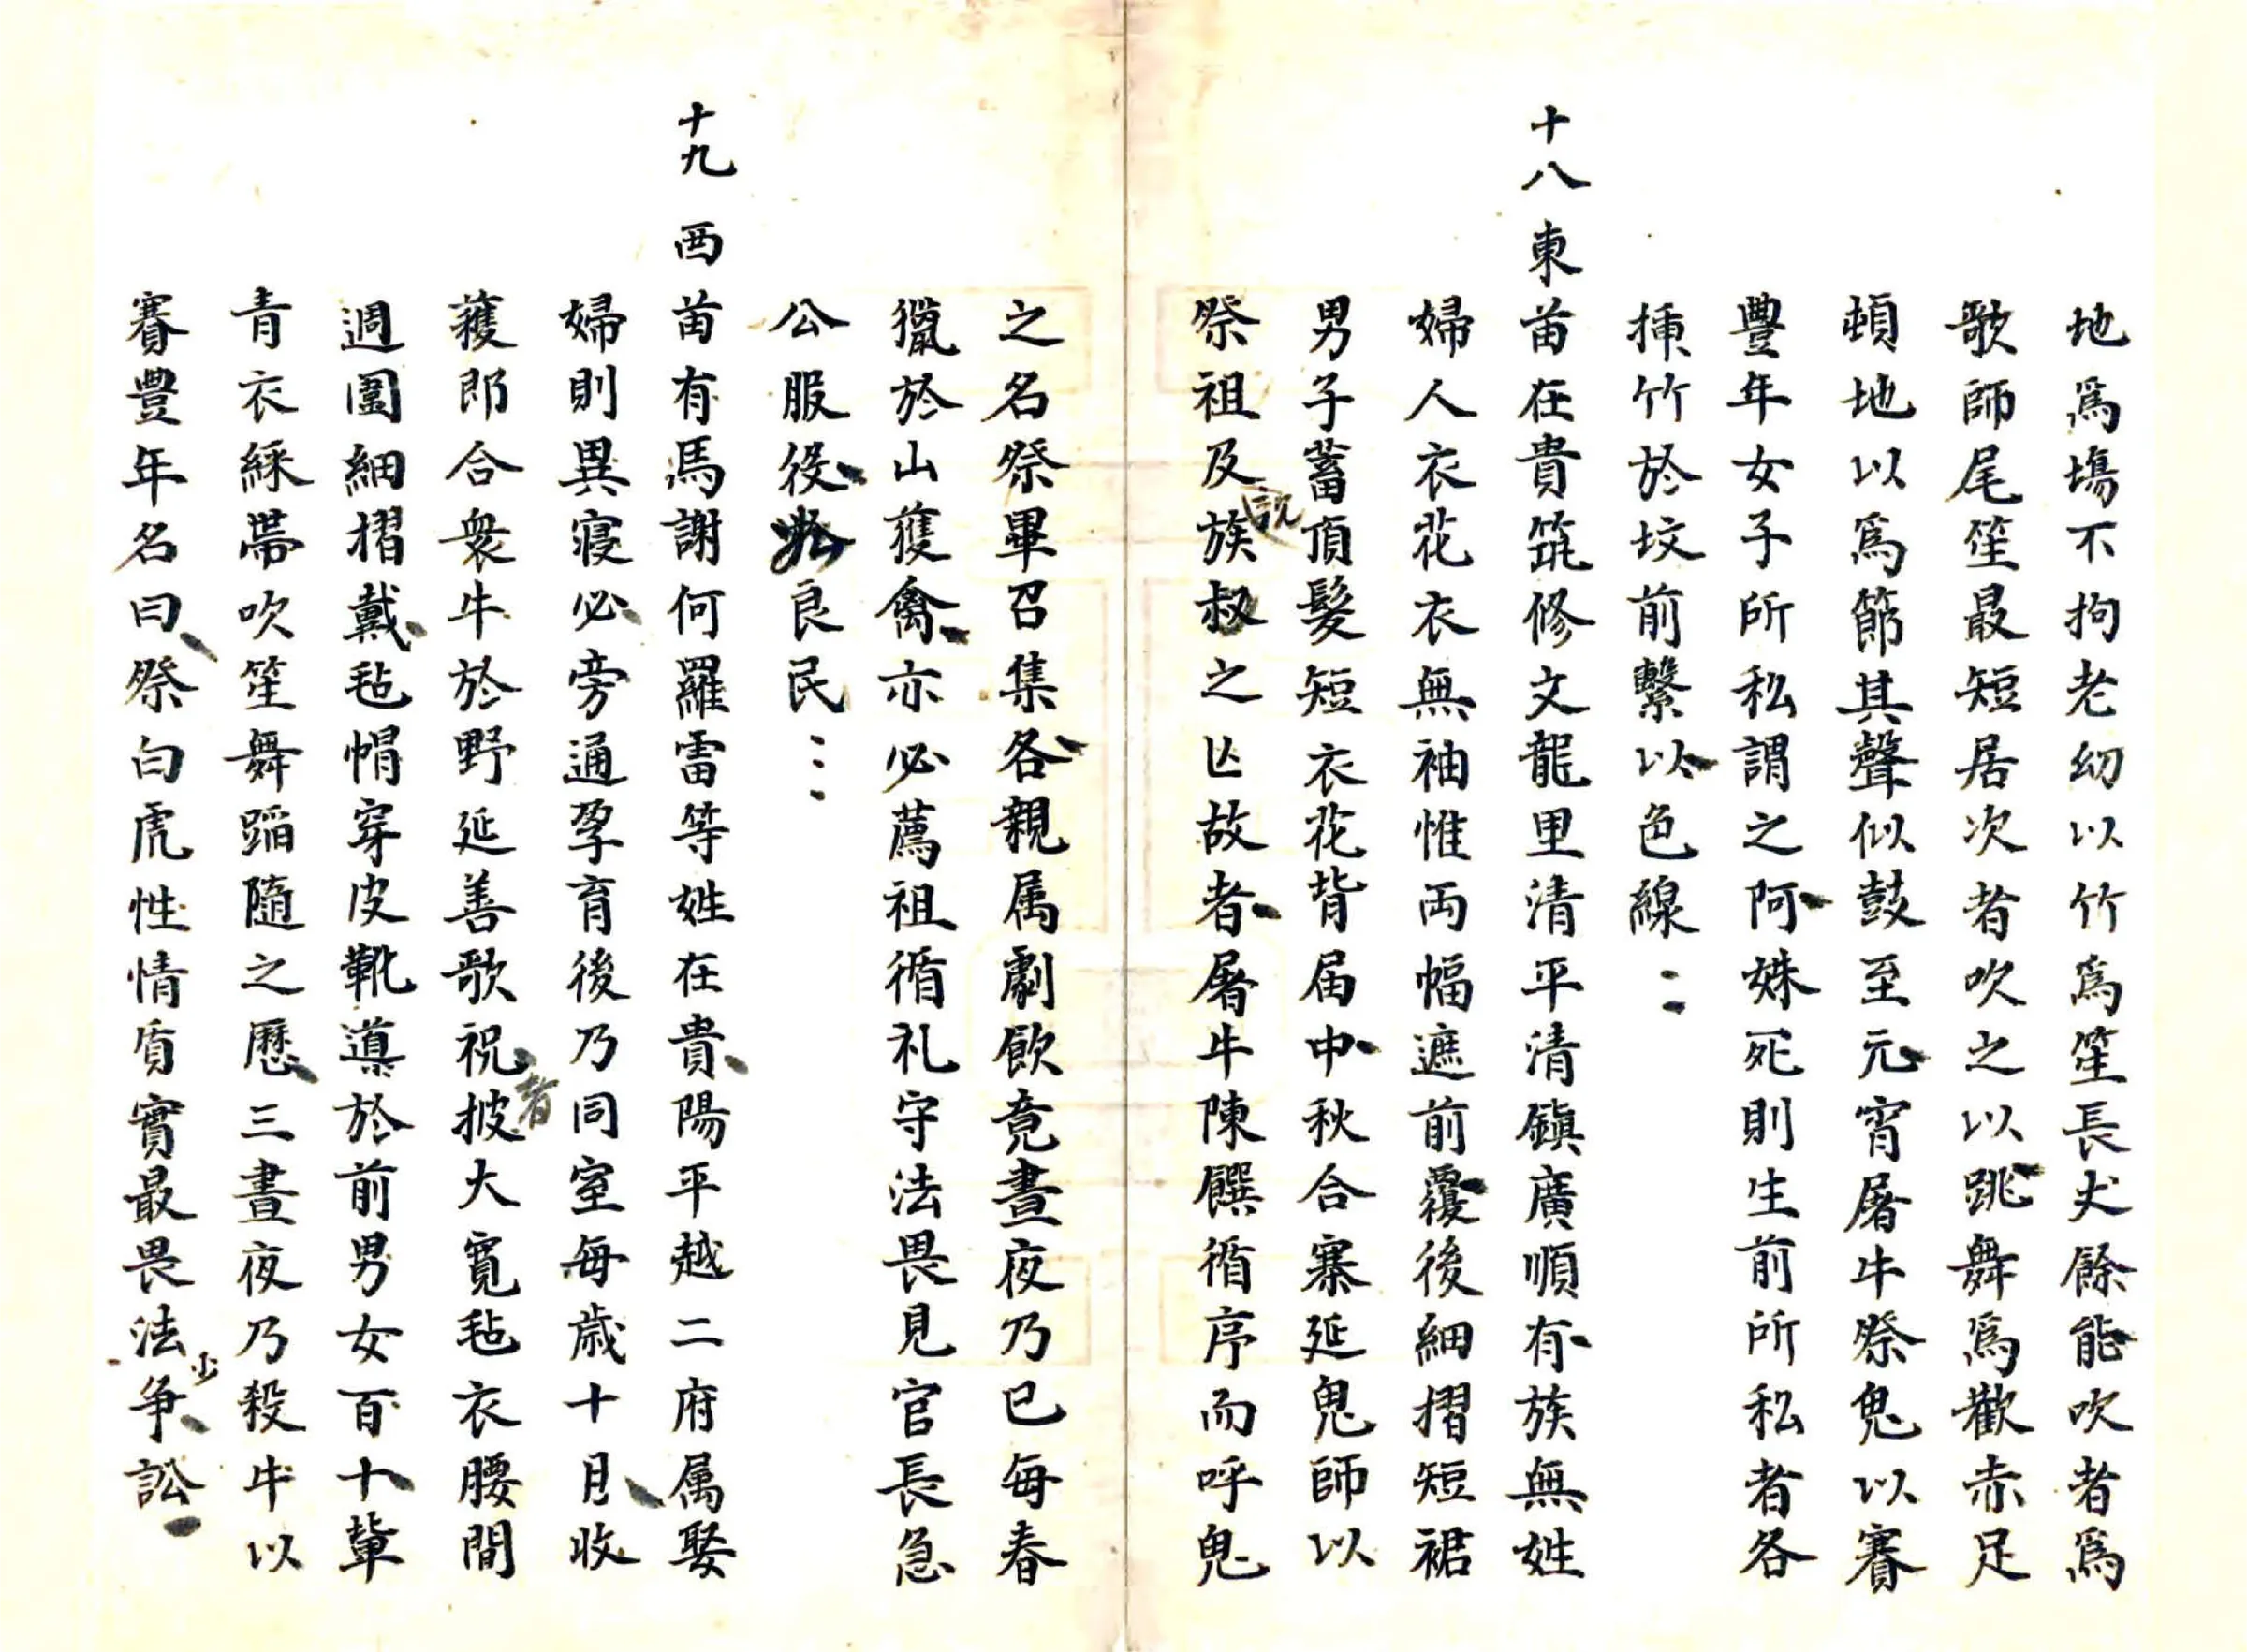 地爲塲不拘老幼以竹爲笙長丈餘能吹者爲
歌師尾笙最短居次者吹之以跳舞爲歡赤足
頓地以爲節其聲似鼓至元宵屠牛祭鬼以賽
豐年女子所私謂之阿姝死則生前所私者各
揷竹於坟前繫以色線
十八 東苗在貴筑修文龍里清平清鎭廣順有族無姓
婦人衣花衣無袖惟両幅遮前覆後細摺短裙
男子蓄頂髮短衣花背届中秋合寨延鬼師以
祭祖及族叔説之亾故者屠牛陳饌循序而呼鬼
之名祭畢召集各親属劇飲竟晝夜乃巳每春
獵於山獲禽亦必薦祖循礼守法畏見官長急
公服役良民
十九 西苗有馬謝何羅雷等姓在貴陽平越二府属娶
婦則異寢必旁通孕育後乃同室每歳十月收
穫郎合衆牛於野延善歌祝者披大寬毡衣腰間
週圍細摺戴毡帽穿皮靴導於前男女百十軰以
青衣綵帶吹笙舞蹈隨之歷三晝夜乃殺牛以
賽豐年名曰祭白虎性情質實最畏法少争訟